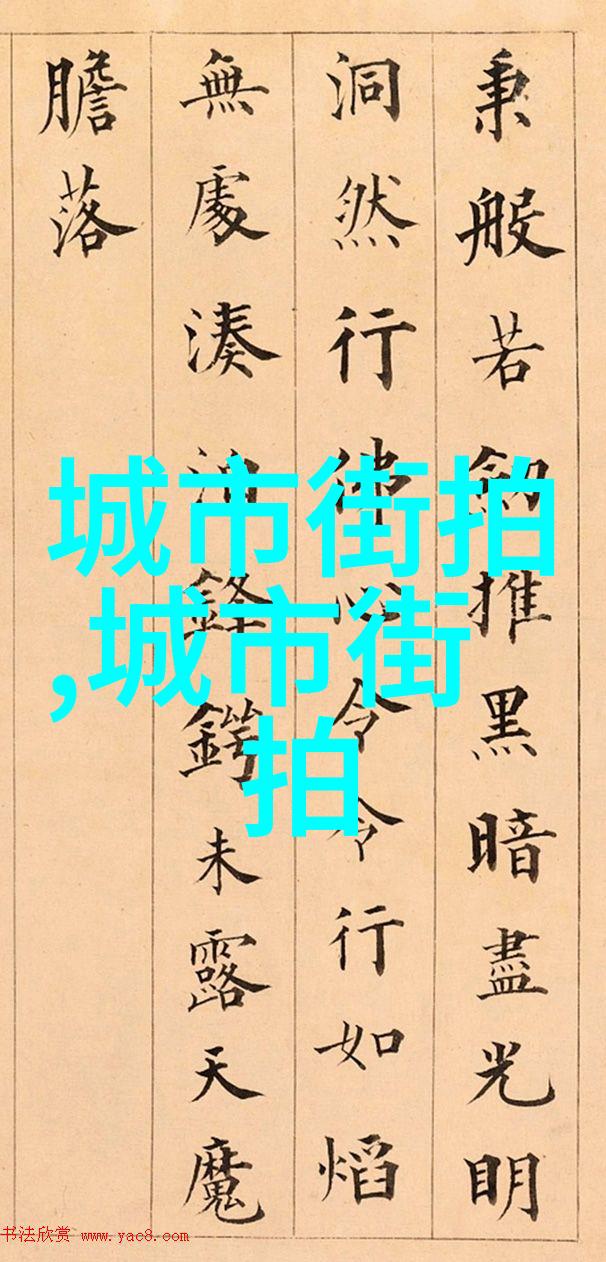 秉般若推黑暗盡光明
洞然行佛心令令行如熖
無處湊泊鋒鍔未露天魔
膽落
城市街拍
,城市街
拍
书法欣赏 www.yac8.com